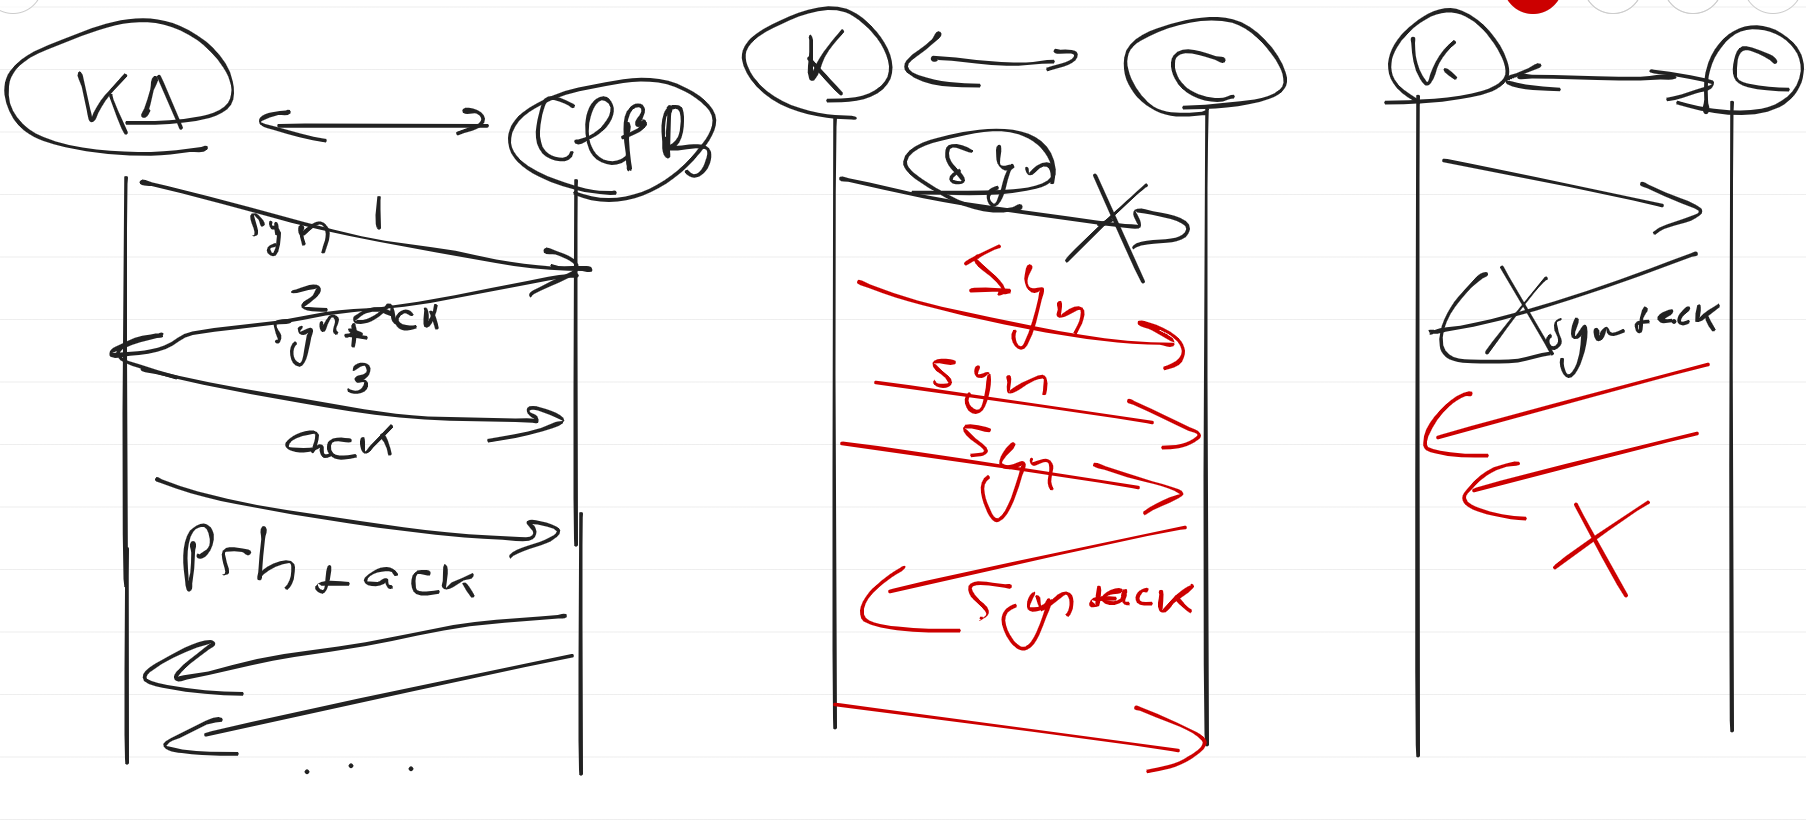 КЛ
СЕРВ
1
syn
2
syn + ack
3
ack
Psh + ack
. . .
К
С
syn
syn
syn
syn
syn + ack
К
С
syn + ack